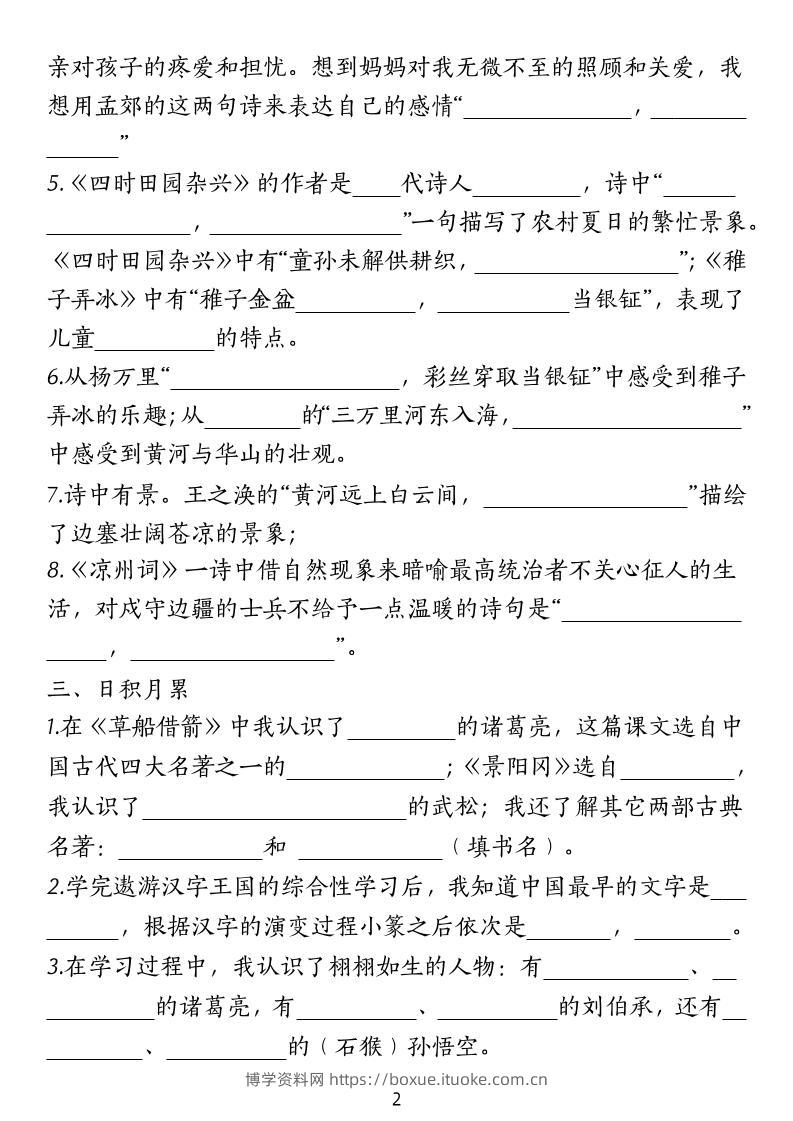 亲对孩子的疼爱和担忧。想到妈妈对我无微不至的照顾和关爱，我
想用孟郊的这两句诗来表达自己的感情“______________，________
______”
5.《四时田园杂兴》的作者是____代诗人_________，诗中“______
____________，________________”一句描写了农村夏日的繁忙景象。
《四时田园杂兴》中有“童孙未解供耕织，_________________”；《稚
子弄冰》中有“稚子金盆__________，___________当银钲”，表现了
儿童__________的特点。
6.从杨万里“___________________，彩丝穿取当银钲”中感受到稚子
弄冰的乐趣；从________的“三万里河东入海，___________________”
中感受到黄河与华山的壮观。
7.诗中有景。王之涣的“黄河远上白云间，_________________”描绘
了边塞壮阔苍凉的景象；
8.《凉州词》一诗中借自然现象来暗喻最高统治者不关心征人的生
活，对戍守边疆的士兵不给予一点温暖的诗句是“_______________
_____，_________________”。
三、日积月累
1.在《草船借箭》中我认识了_________的诸葛亮，这篇课文选自中
国古代四大名著之一的_____________；《景阳冈》选自_________，
我认识了______________________的武松；我还了解其它两部古典
名著：____________和 ____________（填书名）。
2.学完遨游汉字王国的综合性学习后，我知道中国最早的文字是___
______，根据汉字的演变过程小篆之后依次是_______，________。
3.在学习过程中，我认识了栩栩如生的人物：有____________、__
_________的诸葛亮，有__________、__________的刘伯承，还有__
________、__________的（石猴）孙悟空。
博学资料网 https://boxue.ituoke.com.cn
2